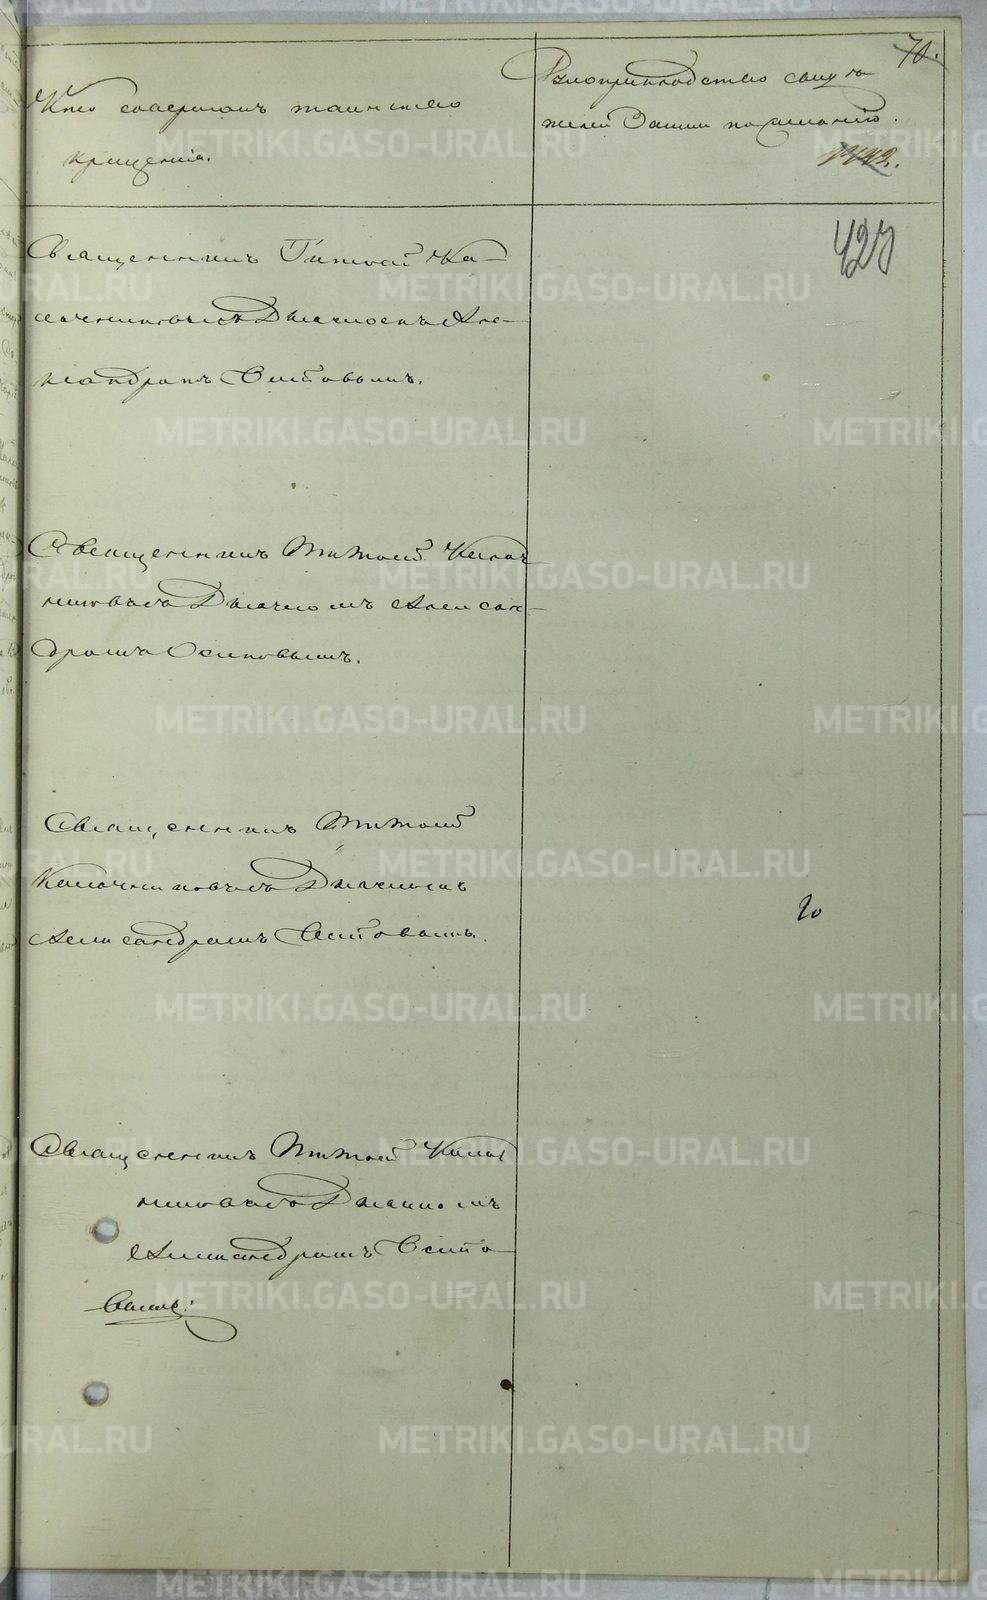 70.
Кто совершалъ таинство
крещенія.
Рукоприкладство свидѣ
телей записи по желанію.
1442.
427
Священникъ Титъ Ка-
лачниковъ съ Діакономъ Але-
ксандромъ Осиповымъ.
Священникъ Титъ Калач
никовъ съ Діакономъ Алексан-
дромъ Осиповымъ.
Священникъ Титъ
Калачниковъ съ Діакономъ
Александромъ Осиповымъ.
20
Священникъ Титъ Калач
никовъ съ Діакономъ
Александромъ Осипо-
вымъ.
METRIKI.GASO-URAL.RU